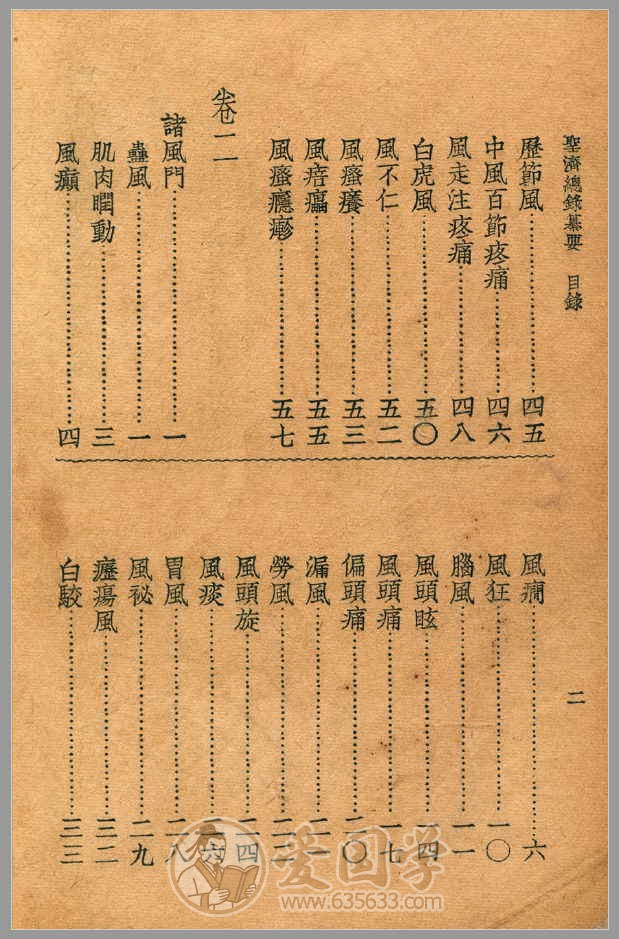 聖濟總錄纂要　目錄
歷節風…………四五
中風百節疼痛…………四六
風走注疼痛…………四八
白虎風…………五〇
風不仁…………五二
風瘙癢…………五三
風瘖㿔…………五五
風瘙癮疹…………五七
卷二
諸風門…………一
蠱風…………一
肌肉瞤動…………三
風癲…………四
風癎…………六
風狂…………一〇
腦風…………一一
風頭眩…………一四
風頭痛…………一七
偏頭痛…………二〇
漏風…………二一
勞風…………二二
風頭旋…………二四
風痰…………二六
胃風…………二八
風祕…………二九
癧瘍風…………三二
白駮…………三三
二
爱国学
www.635633.com